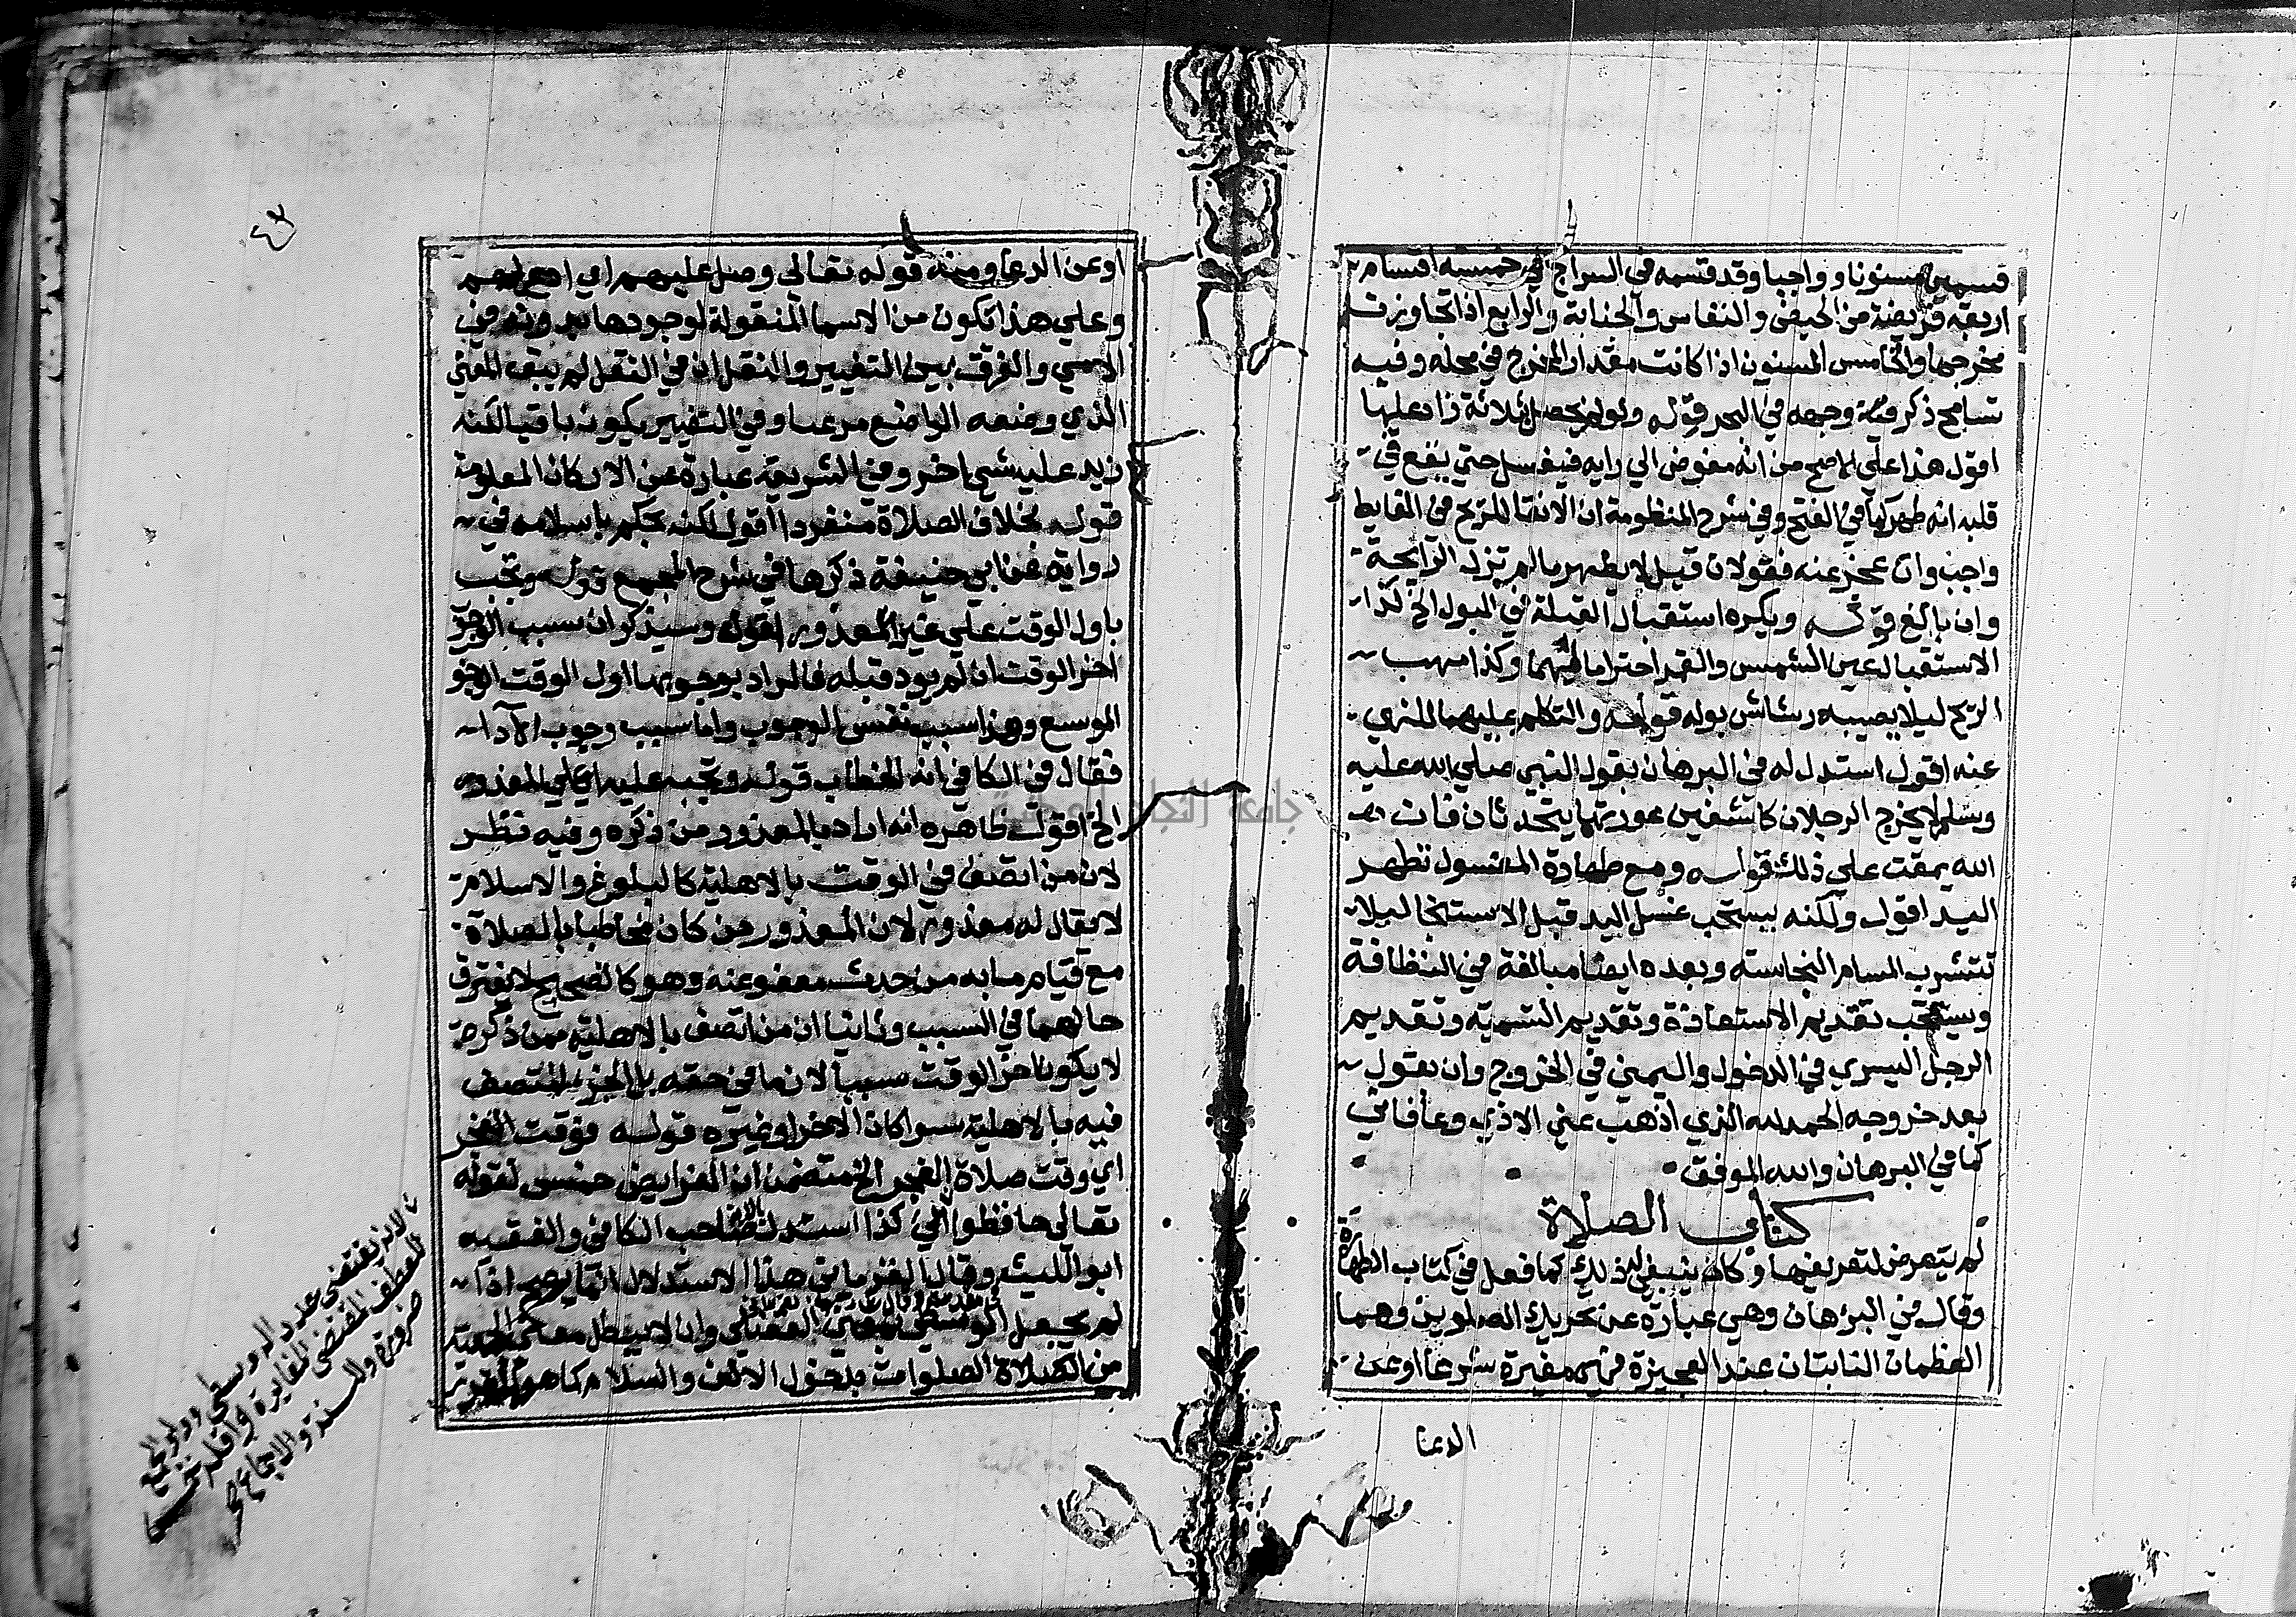 قسمين مسنونا وواجبا وقد قسمه في السراج الي خمسة اقسام
اربعة فريضة من الحيض والنفاس والجنابة والرابع اذا تجاوزت
مخرجها والخامس المسنون اذا كانت مقدار المخرج في محله وفيه
تسامح ذكرت وجهه في البحر قوله ولو لم يحصل بثلاثة زاد عليها
اقول هذا علي الاصح من انه مفوض الي رايه فيغسل حتي يقع في
قلبه انه طهر كما في الفتح وفي شرح المنظومة ان الانقا للريح من الغايط
واجب وان عجز عنه فقولان قيل لا يطهر ما لم تزل الرايحة
وان بالغ قوله ويكره استقبال القبلة في البول الخ كذا
الاستقبال عين الشمس والقمر احتراما لهما وكذا مهب
الريح ليلا يصيبه رشاش بوله قوله والتكلم عليهما للنهي
عنه اقول استدل له في البرهان بقول النبي صلي الله عليه
وسلم لا يخرج الرجلان كاشفين عورتهما يتحدثان فان
الله يمقت علي ذلك قوله ومع طهارة المغسول تطهر
اليد اقول ولكنه يستحب غسل اليد قبل الاستنجا ليلا
تتشرب المسام النجاسة وبعده ايضا مبالغة في النظافة
ويستحب تقديم الاستعاذة وتقديم التسمية وتقديم
الرجل اليسري في الدخول واليمني في الخروج وان يقول
بعد خروجه الحمد لله الذي اذهب عني الاذي وعافاني
كما في البرهان والله الموفق
كتاب الصلاة
لم يتعرض لتعريفها وكان ينبغي له ذلك كما فعل في كتاب الطهارة
وقال في البرهان وهي عبارة عن تحريك الصلوين وهما
العظمان النابتان عند العجيزة فهي مغيرة شرعا او عن
الدعا
٤٢
او عن الدعا ومنه قوله تعالي وصل عليهم اي ادع لهم
وعلي هذا تكون من الاسما المنقولة لوجودها بدونه في
الامي والفرق بين التغيير والنقل ان في النقل لم يبق المعني
الذي وضعه الواضع مرعيا وفي التغيير يكون باقيا لكنه
زيد عليه شي اخر وفي الشريعة عبارة عن الاركان المعلومة
قوله بخلاف الصلاة منفردا اقول لكنه يحكم باسلامه في
رواية عن ابي حنيفة ذكرها في شرح المجمع قوله وتجب
باول الوقت علي غير المعذور اقول وسيذكر ان سبب الوجوب
اخر الوقت ان لم يود قبله فالمراد بوجوبها اول الوقت الوجوب
الموسع وهذا سبب نفس الوجوب واما سبب وجوب الادا
فقال في الكافي انه الخطاب قوله وتجب عليه اي علي المعذور
الخ اقول ظاهره انه اراد بالمعذور من ذكره وفيه نظر
لان من اتصف في الوقت بالاهلية كالبلوغ والاسلام
لا يقال له معذور لان المعذور من كان مخاطبا بالصلاة
مع قيام ما به من حدث معفو عنه وهو كالصحيح لا يفترق
حالهما في السبب وثانيا ان من اتصف بالاهلية ممن ذكره
لا يكون اخر الوقت سببا لازما في حقه بل الجزء المتصف
فيه بالاهلية سوا كان الاخر او غيره قوله فوقت الفجر
اي وقت صلاة الفجر الخ متضمن ان الفرايض خمس لقوله
تعالي حافظوا الخ كذا استدل صاحب الكافي والفقيه
ابو الليث وقال الغزماني هذا الاستدلال انما يصح اذا
لم يجعل الوسطي بمعني الفضلي وان لا يبطل معني الجمعية
من الصلاة الصلوات بدخول الالف والسلام كما هو
لانه يقتضي عدد الدوسطي وولو الجمع
للعطف المقتضي المغايرة واقله خمس
ضرورة والسنة والاجماع